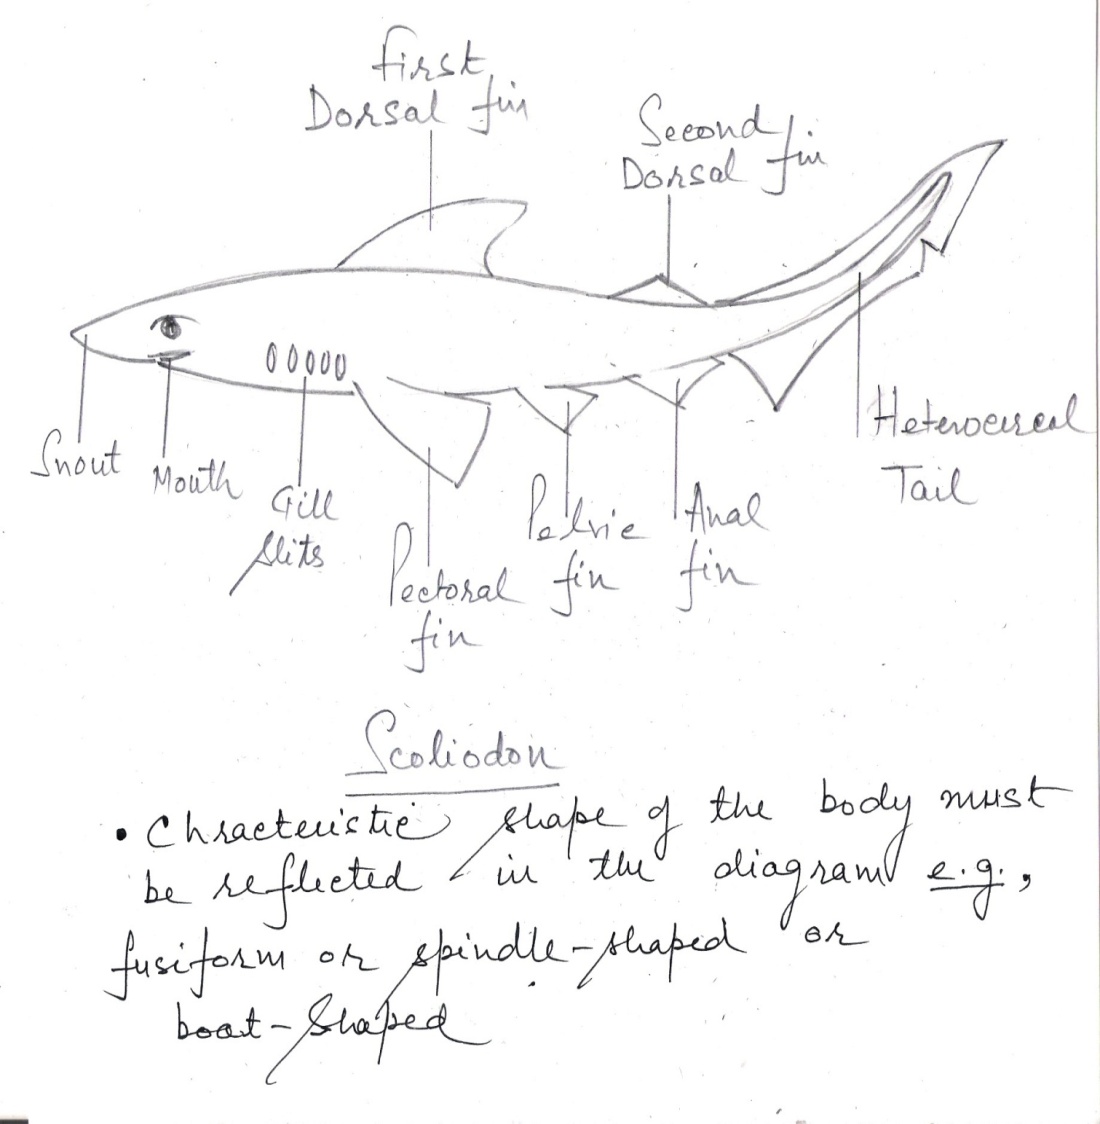 First
Dorsal fin
Second
Dorsal fin
Snout
Mouth
Gill
slits
Pectoral
fin
Pelvic
fin
Anal
fin
Heterocercal
Tail
Scoliodon
• Chracteristic shape of the body must
be reflected in the diagram e.g.,
fusiform or spindle-shaped or
boat-shaped